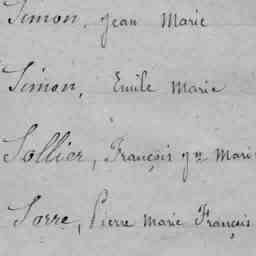 Simon, Jean Marie
Simon, Emile Marie
Sollier, François Marie
Sorre, Pierre Marie François